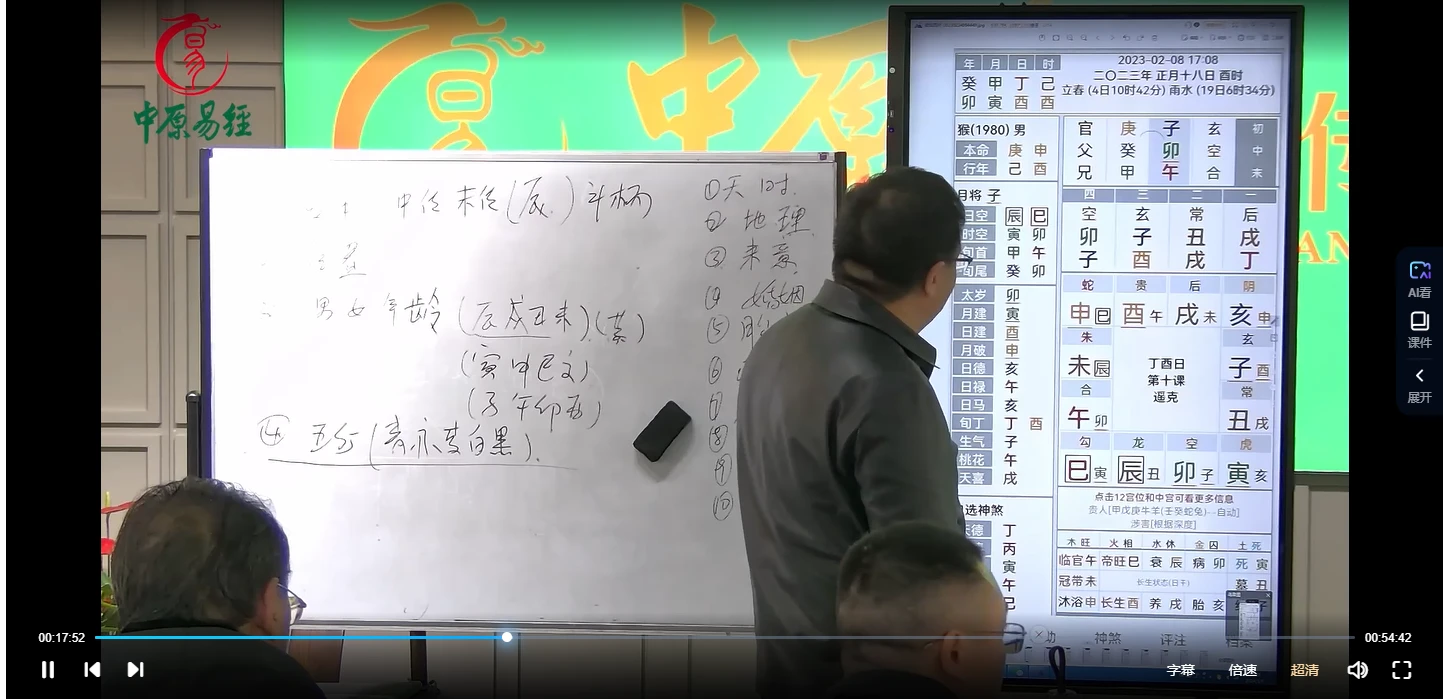 中原易經
中传末传(辰)斗柄
男女年龄(辰戌丑未)(
(寅申巳亥)
(子午卯酉)
④ 五行(青赤黄白黑).
①天时.
② 地理
③ 来意
④ 婚姻
⑤
⑥
⑦
⑧
⑨
⑩
2023-02-08 17:08
年 月 日 时
癸 甲 丁 己
卯 寅 酉 酉
二〇二三年 正月十八日 酉时
立春 (4日10时42分) 雨水 (19日6时34分)
猴(1980) 男
本命 庚 申
行年 己 酉
官 庚 子 玄 初
父 癸 卯 空 中
兄 甲 午 合 末
月将 子
日空 辰 巳
时空 寅 卯
旬首 甲 午
旬尾 癸 卯
四 三 二 一
空 玄 常 后
卯 子 丑 戌
子 酉 戌 丁
太岁 卯
月建 寅
日建 酉
月破 申
日德 亥
日禄 午
日马 亥
旬丁 丁 酉
生气 子
桃花 午
天喜 戌
蛇 贵 后 阴
申巳 酉午 戌未 亥申
朱 玄
未辰 子酉
丁酉日
第十课
遥克
合 常
午卯 丑戌
勾 龙 空 虎
巳寅 辰丑 卯子 寅亥
点击12宫位和中宫可看更多信息
贵人[甲戊庚牛羊(壬癸蛇兔)--自动]
涉害[根据深度]
选神煞
天德 丁
丙
寅
午
己
木旺 火相 水休 金囚 土死
临官午 帝旺巳 衰辰 病卯 死寅
冠带未 长生状态(日干) 墓丑
沐浴申 长生酉 养戌 胎亥
神煞 评注 档案
AI看
课件
展开
00:17:52
00:54:42
字幕 倍速 超清